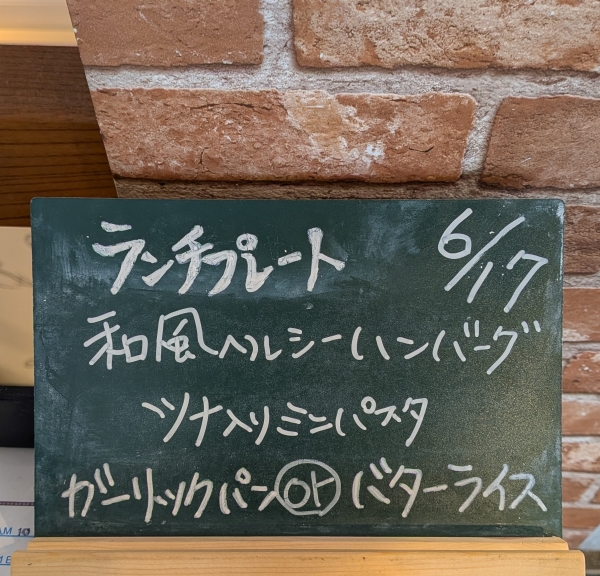 ランチプレート 6/17
和風ヘルシーハンバーグ
ツナ入りミニパスタ
ガーリックパン or バターライス